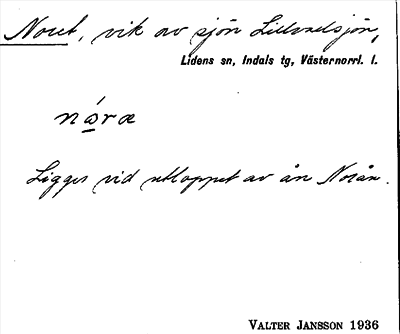 Noret, vik av sjön Lillvadsjön,
Lidens sn, Indals tg, Västernorrl. l.
nǻ̱ræ
Ligger vid utloppet av ån Norån.
VALTER JANSSON 1936